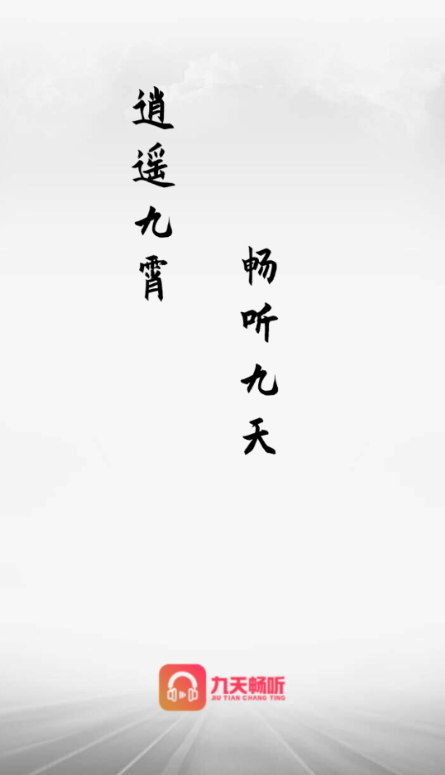 逍遥九霄
畅听九天
九天畅听
JIU TIAN CHANG TING